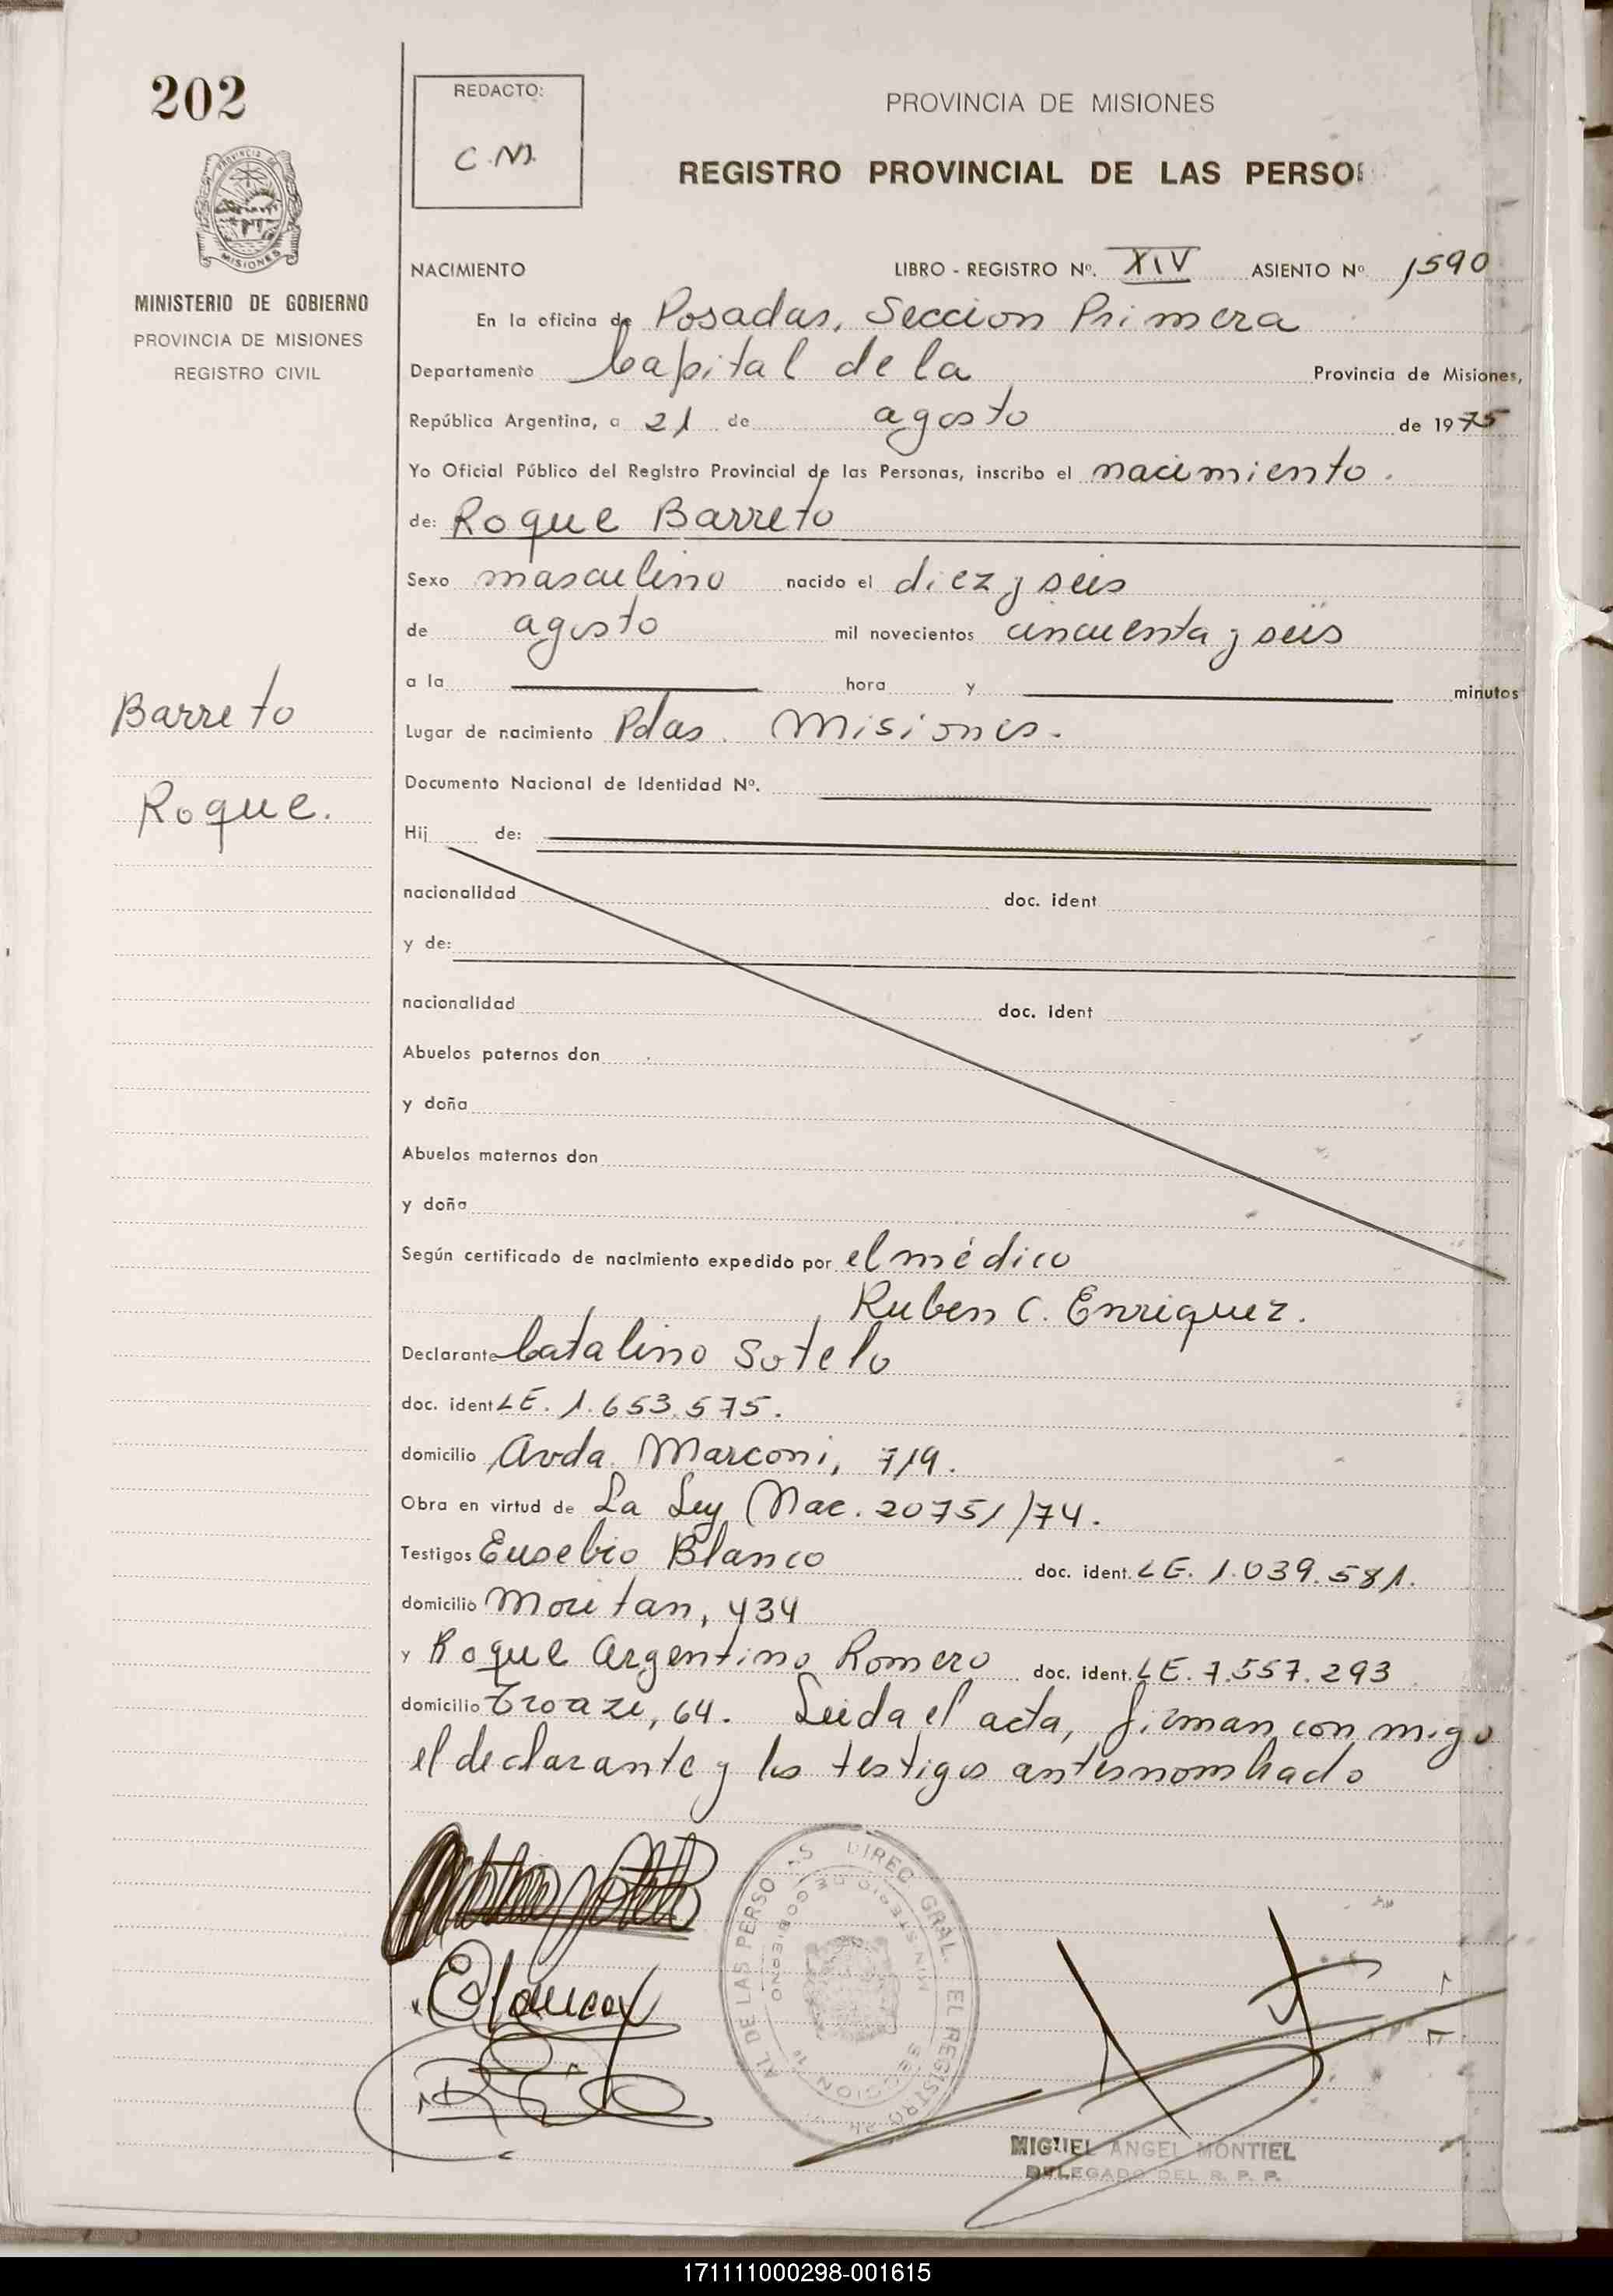 202
REDACTO:
C.N.
PROVINCIA DE MISIONES
REGISTRO PROVINCIAL DE LAS PERSO
PROVINCIA DE
MISIONES
MINISTERIO DE GOBIERNO
PROVINCIA DE MISIONES
REGISTRO CIVIL
NACIMIENTO LIBRO - REGISTRO Nº. XIV ASIENTO Nº 1590
En la oficina de Posadas, Seccion Primera
Departamento Capital de la Provincia de Misiones,
República Argentina, a 21 de agosto de 1975
Yo Oficial Público del Registro Provincial de las Personas, inscribo el nacimiento.
de: Roque Barreto
Sexo masculino nacido el diez y seis
de agosto mil novecientos cincuenta y seis
a la hora y minutos
Barreto
Lugar de nacimiento Pdas. Misiones.
Documento Nacional de Identidad Nº.
Roque.
Hij de:
nacionalidad doc. ident
y de:
nacionalidad doc. ident
Abuelos paternos don
y doña
Abuelos maternos don
y doña
Según certificado de nacimiento expedido por el médico
Ruben C. Enriquez.
Declarante Catalino Sotelo
doc. ident LE. 1.653.575.
domicilio Avda. Marconi, 719.
Obra en virtud de La Ley Nac. 20751/74.
Testigos Eusebio Blanco doc. ident. LE. 1.039.581.
domicilio Moritan, 434
y Roque Argentino Romero doc. ident. LE. 7.557.293
domicilio 64. Leida el acta, firman con migo
el declarante y los testigos antesnombrado
DIREC. GRAL. EL REGISTRO AL DE LAS PERSO AS
MINISTERIO DE GOBIERNO
SECCION 1ª
MIGUEL ANGEL MONTIEL
DELEGADO DEL R. P. P.
171111000298-001615